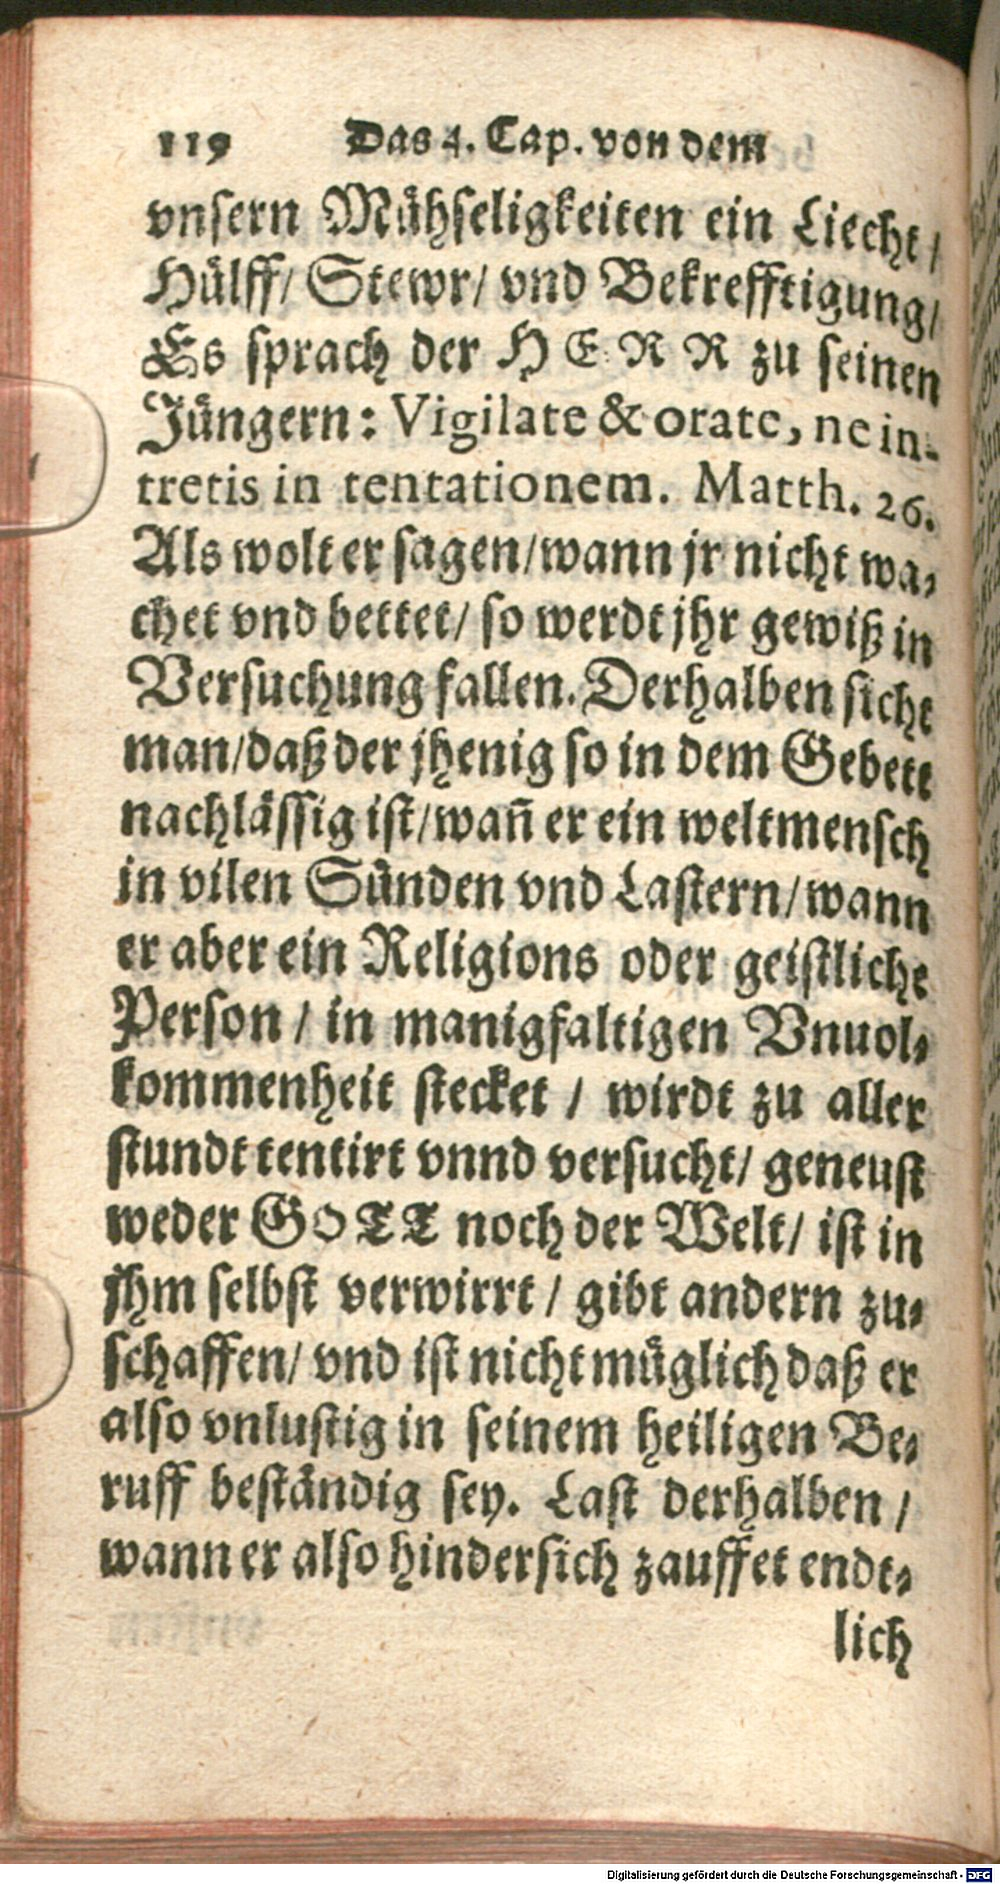 119 Das 4. Cap. von dem
vnsern Mühseligkeiten ein Liecht /
Hülff/ Stewr/ vnd Bekrefftigung/
Es sprach der HERR zu seinen
Jüngern: Vigilate & orate, ne in-
tretis in tentationem. Matth. 26.
Als wolt er sagen/wann jr nicht wa-
chet vnd bettet/ so werdt jhr gewiß in
Versuchung fallen. Derhalben sicht
man/daß der jhenig so in dem Gebett
nachlässig ist/wañ er ein weltmensch
in vilen Sünden vnd Lastern/wann
er aber ein Religions oder geistliche
Person / in manigfaltigen Vnuol-
kommenheit stecket / wirdt zu aller
stundt tentirt vnnd versucht/ geneust
weder GOTT noch der Welt/ ist in
jhm selbst verwirrt / gibt andern zu-
schaffen/ vnd ist nicht müglich daß er
also vnlustig in seinem heiligen Be-
ruff beständig sey. Last derhalben /
wann er also hindersich zauffet endt-
lich
Digitalisierung gefördert durch die Deutsche Forschungsgemeinschaft - DFG